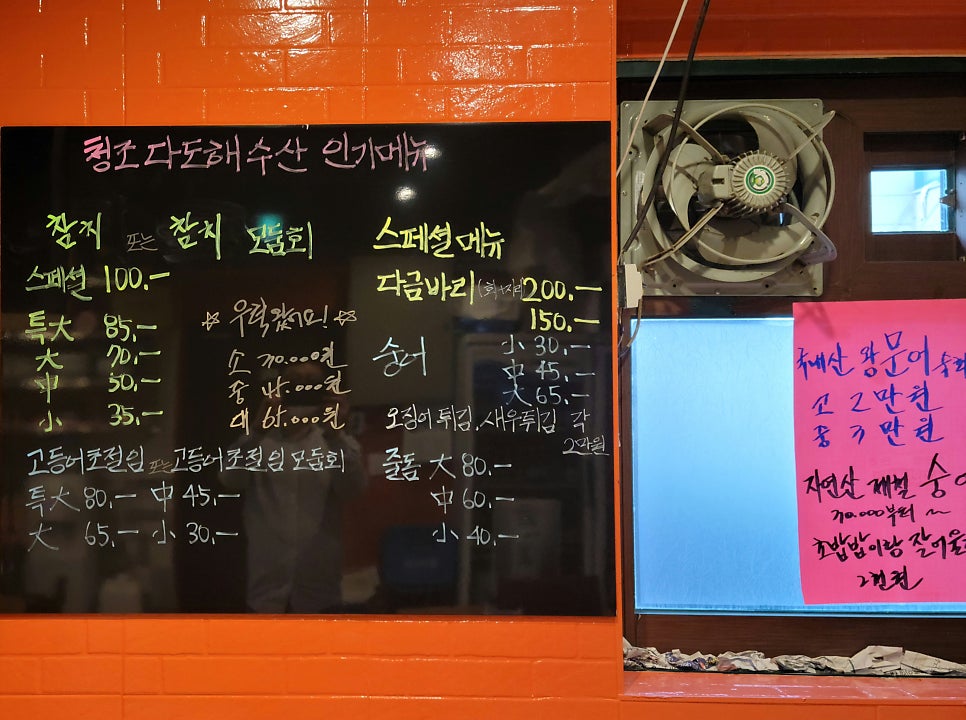 청조 다도해 수산 인기메뉴
참치 또는 참치 모듬회
스페셜 100.-
특大 85.-
大 70.-
中 50.-
小 35.-
☆ 우럭 왔어요! ☆
소 30.000원
중 45.000원
대 65.000원
고등어초절임 또는 고등어초절임 모듬회
특大 80.- 中 45.-
大 65.- 小 30.-
스페셜 메뉴
다금바리 (회+지리) 200.-
150.-
숭어 小 30.-
中 45.-
大 65.-
오징어 튀김, 새우튀김 각
2만원
줄돔 大 80.-
中 60.-
小 40.-
국내산 왕문어
소 2만원
중 3만원
자연산 제철
30.000부터 ~
초밥밥이랑
2천원